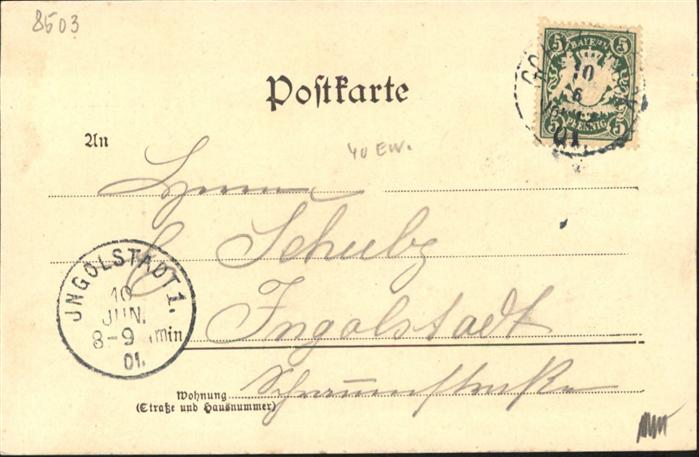 8503
5 BAYERN 5
5 PFENNIG 5
10
6
01
Postkarte
40 EW.
An
Herrn
Schulz
JNGOLSTADT 1.
10
JUN.
8-9
01.
Ingolstadt
Wohnung
(Straße und Hausnummer)